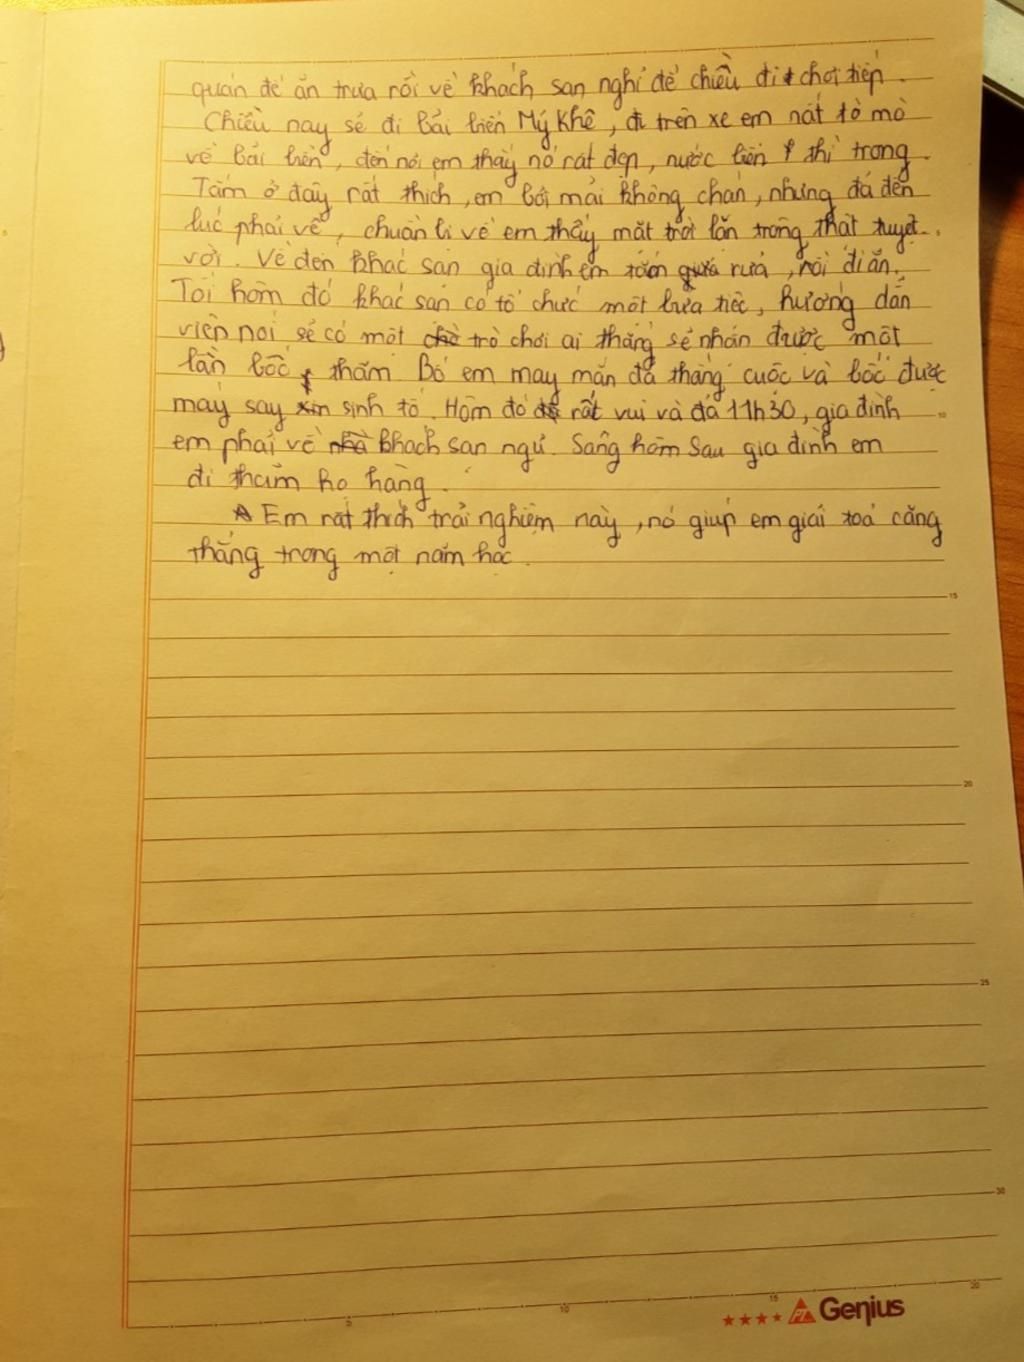 quán để ăn trưa rồi về khách sạn nghỉ để chiều đi chơi tiếp.
Chiều nay sẽ đi bãi biển Mỹ Khê, đi trên xe em nất tò mò
về bãi biển, đến nơi em thấy nó rất đẹp, nước biển thì trong.
Tắm ở đây rất thích, em bơi mãi không chán, nhưng đã đến
lúc phải về, chuẩn bị về em thấy mặt trời lặn trông thật tuyệt
vời. Về đến khác sạn gia đình em rửa, rồi đi ăn.
Tối hôm đó khác sạn có tổ chức một bữa tiệc, hướng dẫn
viên nói sẽ có một trò chơi ai thắng sẽ nhận được một
lần bốc thăm Bố em may mắn đã thắng cuộc và bốc được
máy say sinh tố. Hôm đó rất vui và đã 11h30, gia đình
em phải về khách sạn ngủ. Sáng hôm sau gia đình em
đi thăm họ hàng.
Em rất thích trải nghiệm này, nó giúp em giải toả căng
thẳng trong một năm học.
10
15
20
25
30
5 10 15 20
★★★★ Genius